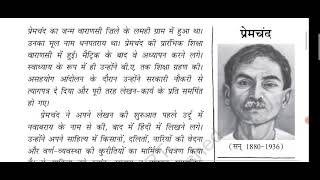 प्रेमचंद का जन्म वाराणसी ज़िले के लमही ग्राम में हुआ था।
उनका मूल नाम धनपतराय था। प्रेमचंद की प्रारंभिक शिक्षा
वाराणसी में हुई। मैट्रिक के बाद वे अध्यापन करने लगे।
स्वाध्याय के रूप में ही उन्होंने बी.ए. तक शिक्षा ग्रहण की।
असहयोग आंदोलन के दौरान उन्होंने सरकारी नौकरी से
त्यागपत्र दे दिया और पूरी तरह लेखन-कार्य के प्रति समर्पित
हो गए।
प्रेमचंद ने अपने लेखन की शुरुआत पहले उर्दू में
नवाबराय के नाम से की, बाद में हिंदी में लिखने लगे।
उन्होंने अपने साहित्य में किसानों, दलितों, नारियों की वेदना
और वर्ण-व्यवस्था की कुरीतियों का मार्मिक चित्रण किया
प्रेमचंद
(सन् 1880-1936)